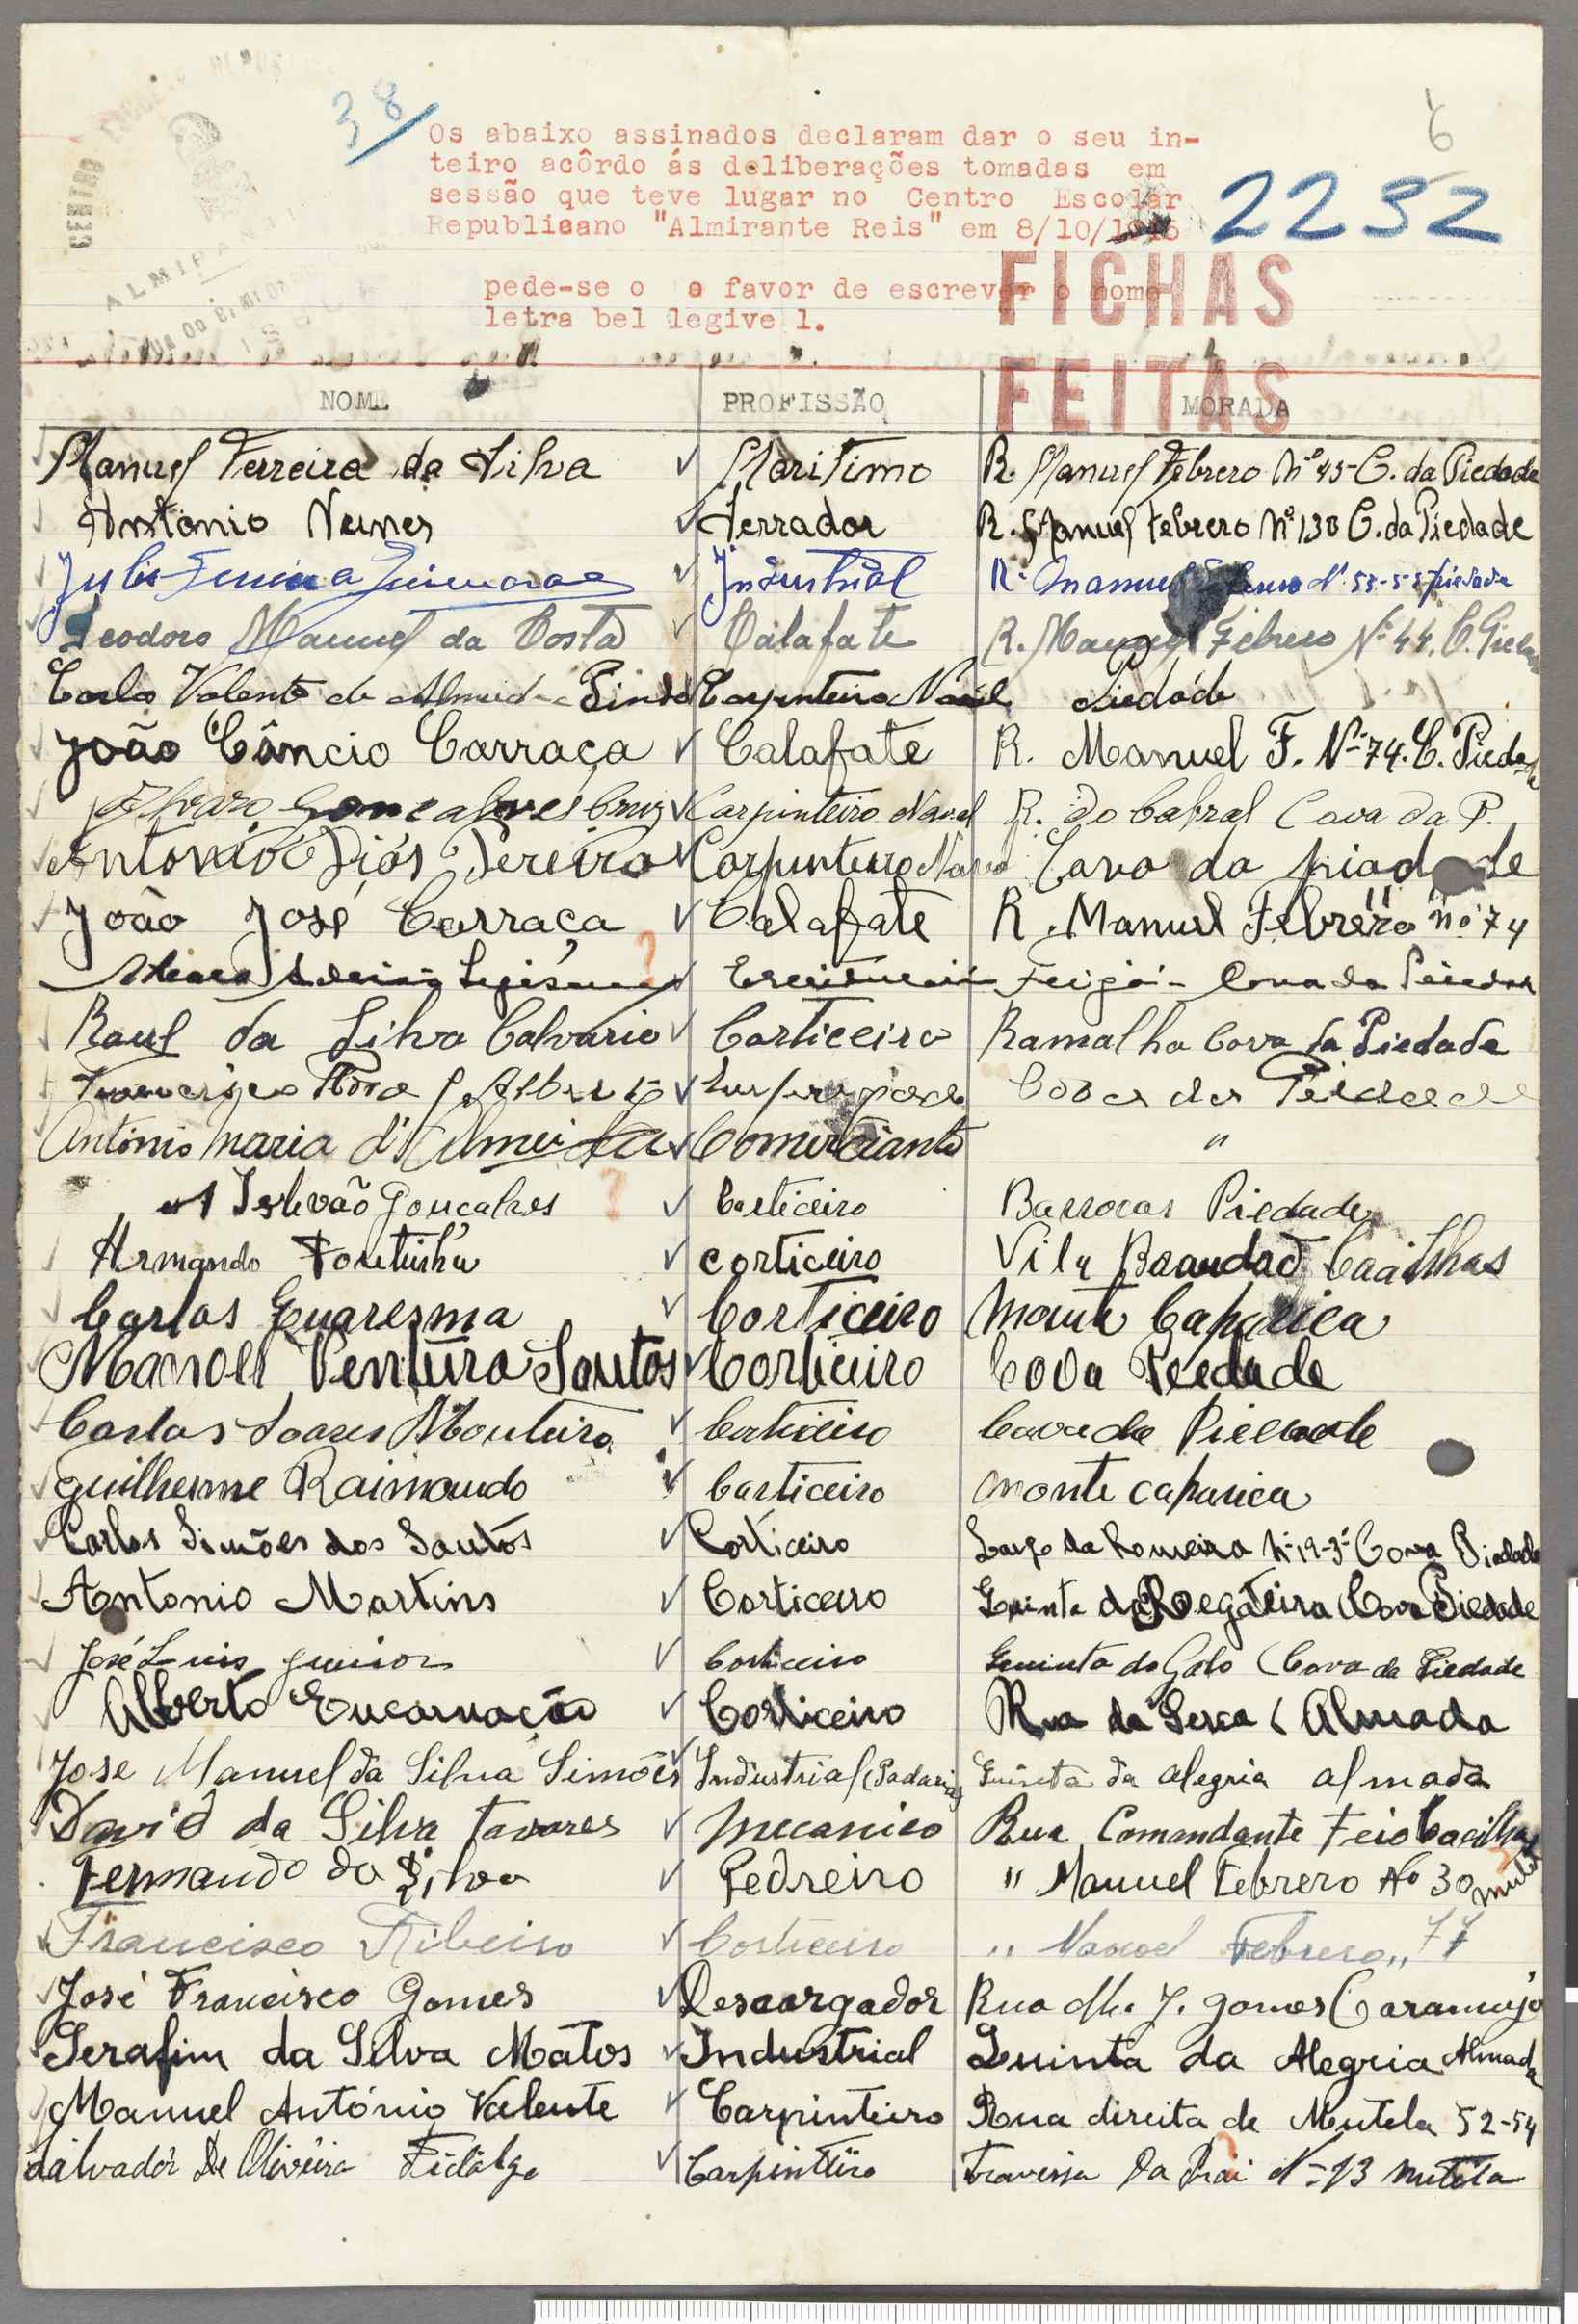 38
6
Os abaixo assinados declaram dar o seu in-
teiro acôrdo ás deliberações tomadas em
sessão que teve lugar no Centro Escolar
Republicano "Almirante Reis" em 8/10/1945
2232
pede-se o o favor de escrever o nome
letra bel legive l.
FICHAS
FEITAS
NOME PROFISSÃO MORADA
Manuel Ferreira da Silva Maritimo R. Manuel Febrero Nº 45-C. da Piedade
Antonio Nunes Serrador R. Manuel Febrero Nº 130 C. da Piedade
Industrial R. Manuel Nº 53-53 Piedade
Teodoro Manuel da Costa Calafate R. Manuel Febrero Nº 44. C.
Carlos Valente de Almeida Pinto Carpinteiro Naval Piedade
João Câncio Carraça Calafate R. Manuel F. Nº 74. C. Piedade
Alvaro Gonçalves Cruz Carpinteiro Naval R. do Cabral Cova da P.
Antonio Dias Pereira Carpinteiro Naval Cova da piadade
João José Carraça Calafate R. Manuel Febrero nº 74
Feijó - Cova da Piedade
Raul da Silva Calvario Corticeiro Ramalha Cova da Piedade
Cova da Piedade
António Maria d'Almeida Comerciante "
Estevão Gonçalves Corticeiro Barrocas Piedade
Armando Corticeiro Vila Cacilhas
Carlos Quaresma Corticeiro Monte Caparica
Manoel Ventura Santos Corticeiro Cova Piedade
Carlos Soares Monteiro Corticeiro Cova da Piedade
Guilherme Raimundo Corticeiro Monte caparica
Carlos Simões dos Santos Corticeiro Largo da Romeira Nº 19-3º Cova Piedade
Antonio Martins Corticeiro Quinta da Regateira Cova Piedade
José Luis Junior Corticeiro Quinta do Gato Cova da Piedade
Alberto Encarnação Corticeiro Rua da Almada
Jose Manuel da Silva Simões Industrial (Padaria) Quinta da alegria almada
David da Silva Tavares Mecanico Rua Comandante Feio Cacilhas
Fernando da Silva Pedreiro " Manuel Febrero Nº 30 Mutela
Francisco Ribeiro Corticeiro " Manoel Febrero " 77
José Francisco Gomes Descargador Rua J. Gomes Caramujo
Serafim da Silva Matos Industrial Quinta da Alegria Almada
Manuel António Valente Carpinteiro Rua direita de Mutela 52-54
Salvador De Oliveira Fidalgo Carpinteiro Travessa da Nº 13 Mutela